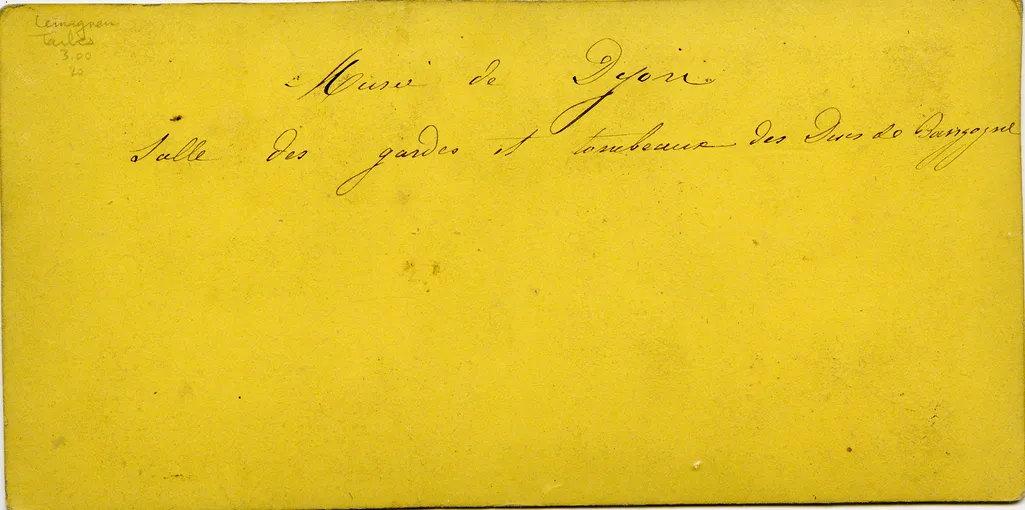 Lemagnen
Tarbes
3.00
20
Musée de Dyon
Salle des gardes et tombeaux des Ducs de Bourgogne